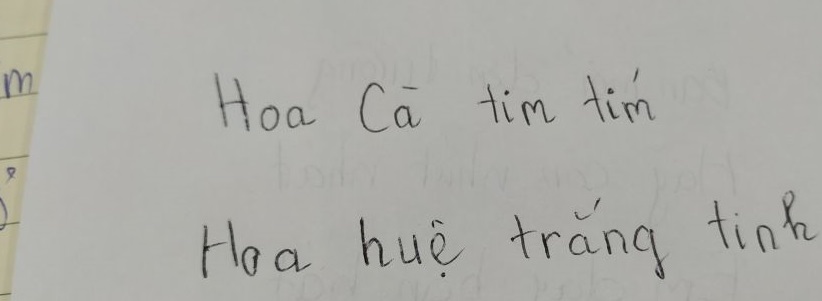 Hoa Cà tim tím
Hoa huệ trắng tinh